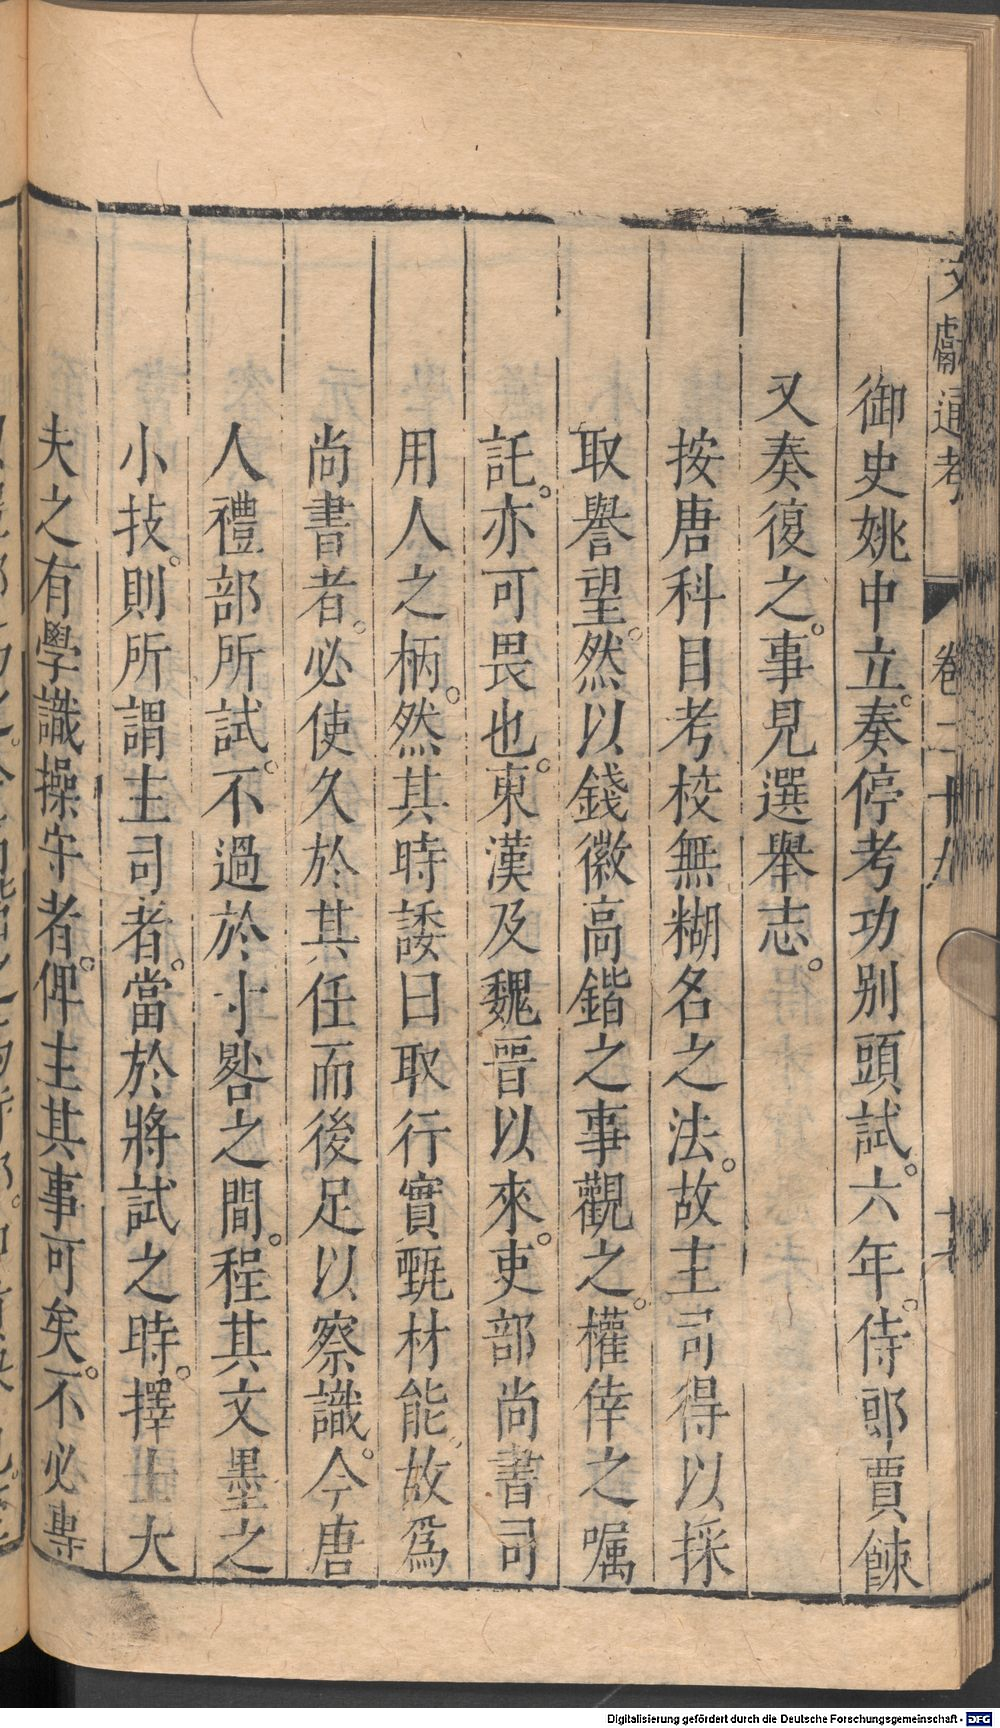 文獻通考 卷二十九
御史姚中立。奏停考功別頭試。六年。侍郎賈餗
又奏復之。事見選舉志。
按唐科目考校無糊名之法。故主司得以採
取譽望。然以錢徽高鍇之事觀之。權倖之嘱
託。亦可畏也。東漢及魏晉以來。吏部尚書司
用人之柄。然其時諉曰取行實甄材能。故爲
尚書者。必使久於其任而後足以察識。今唐
人禮部所試。不過於寸晷之間。程其文墨之
小技。則所謂主司者。當於將試之時。擇士大
夫之有學識操守者。俾主其事可矣。不必專
Digitalisierung gefördert durch die Deutsche Forschungsgemeinschaft - DFG